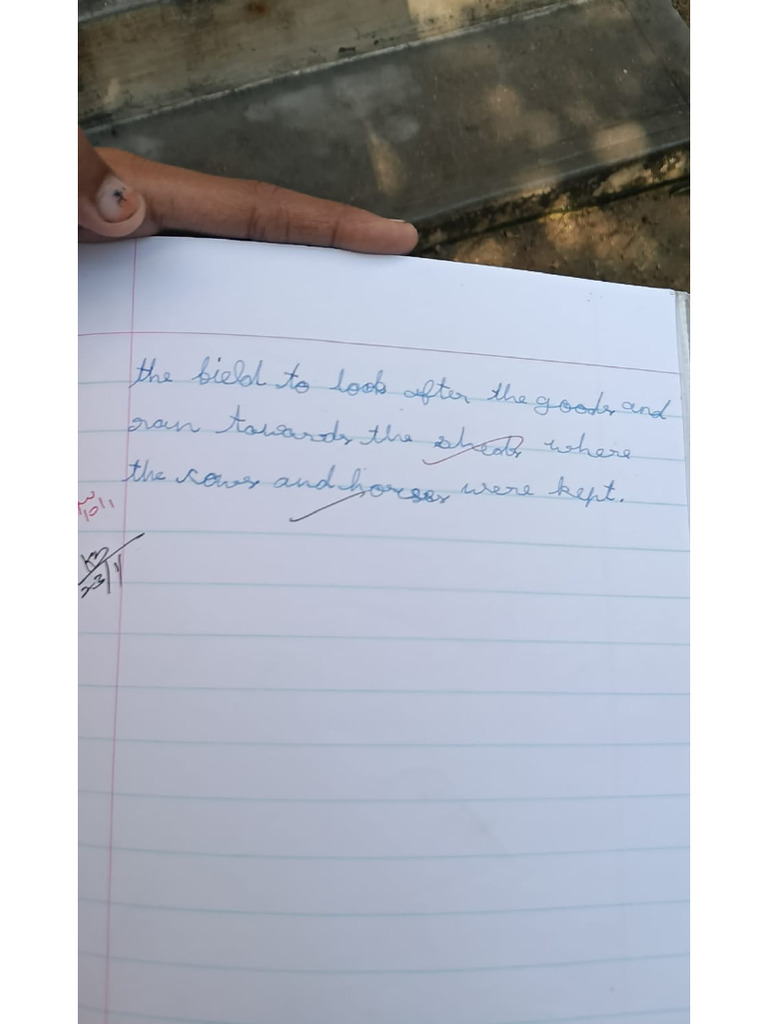 the field to look after the goods and
ran towards the sheds where
the cows and horses were kept.
23/1